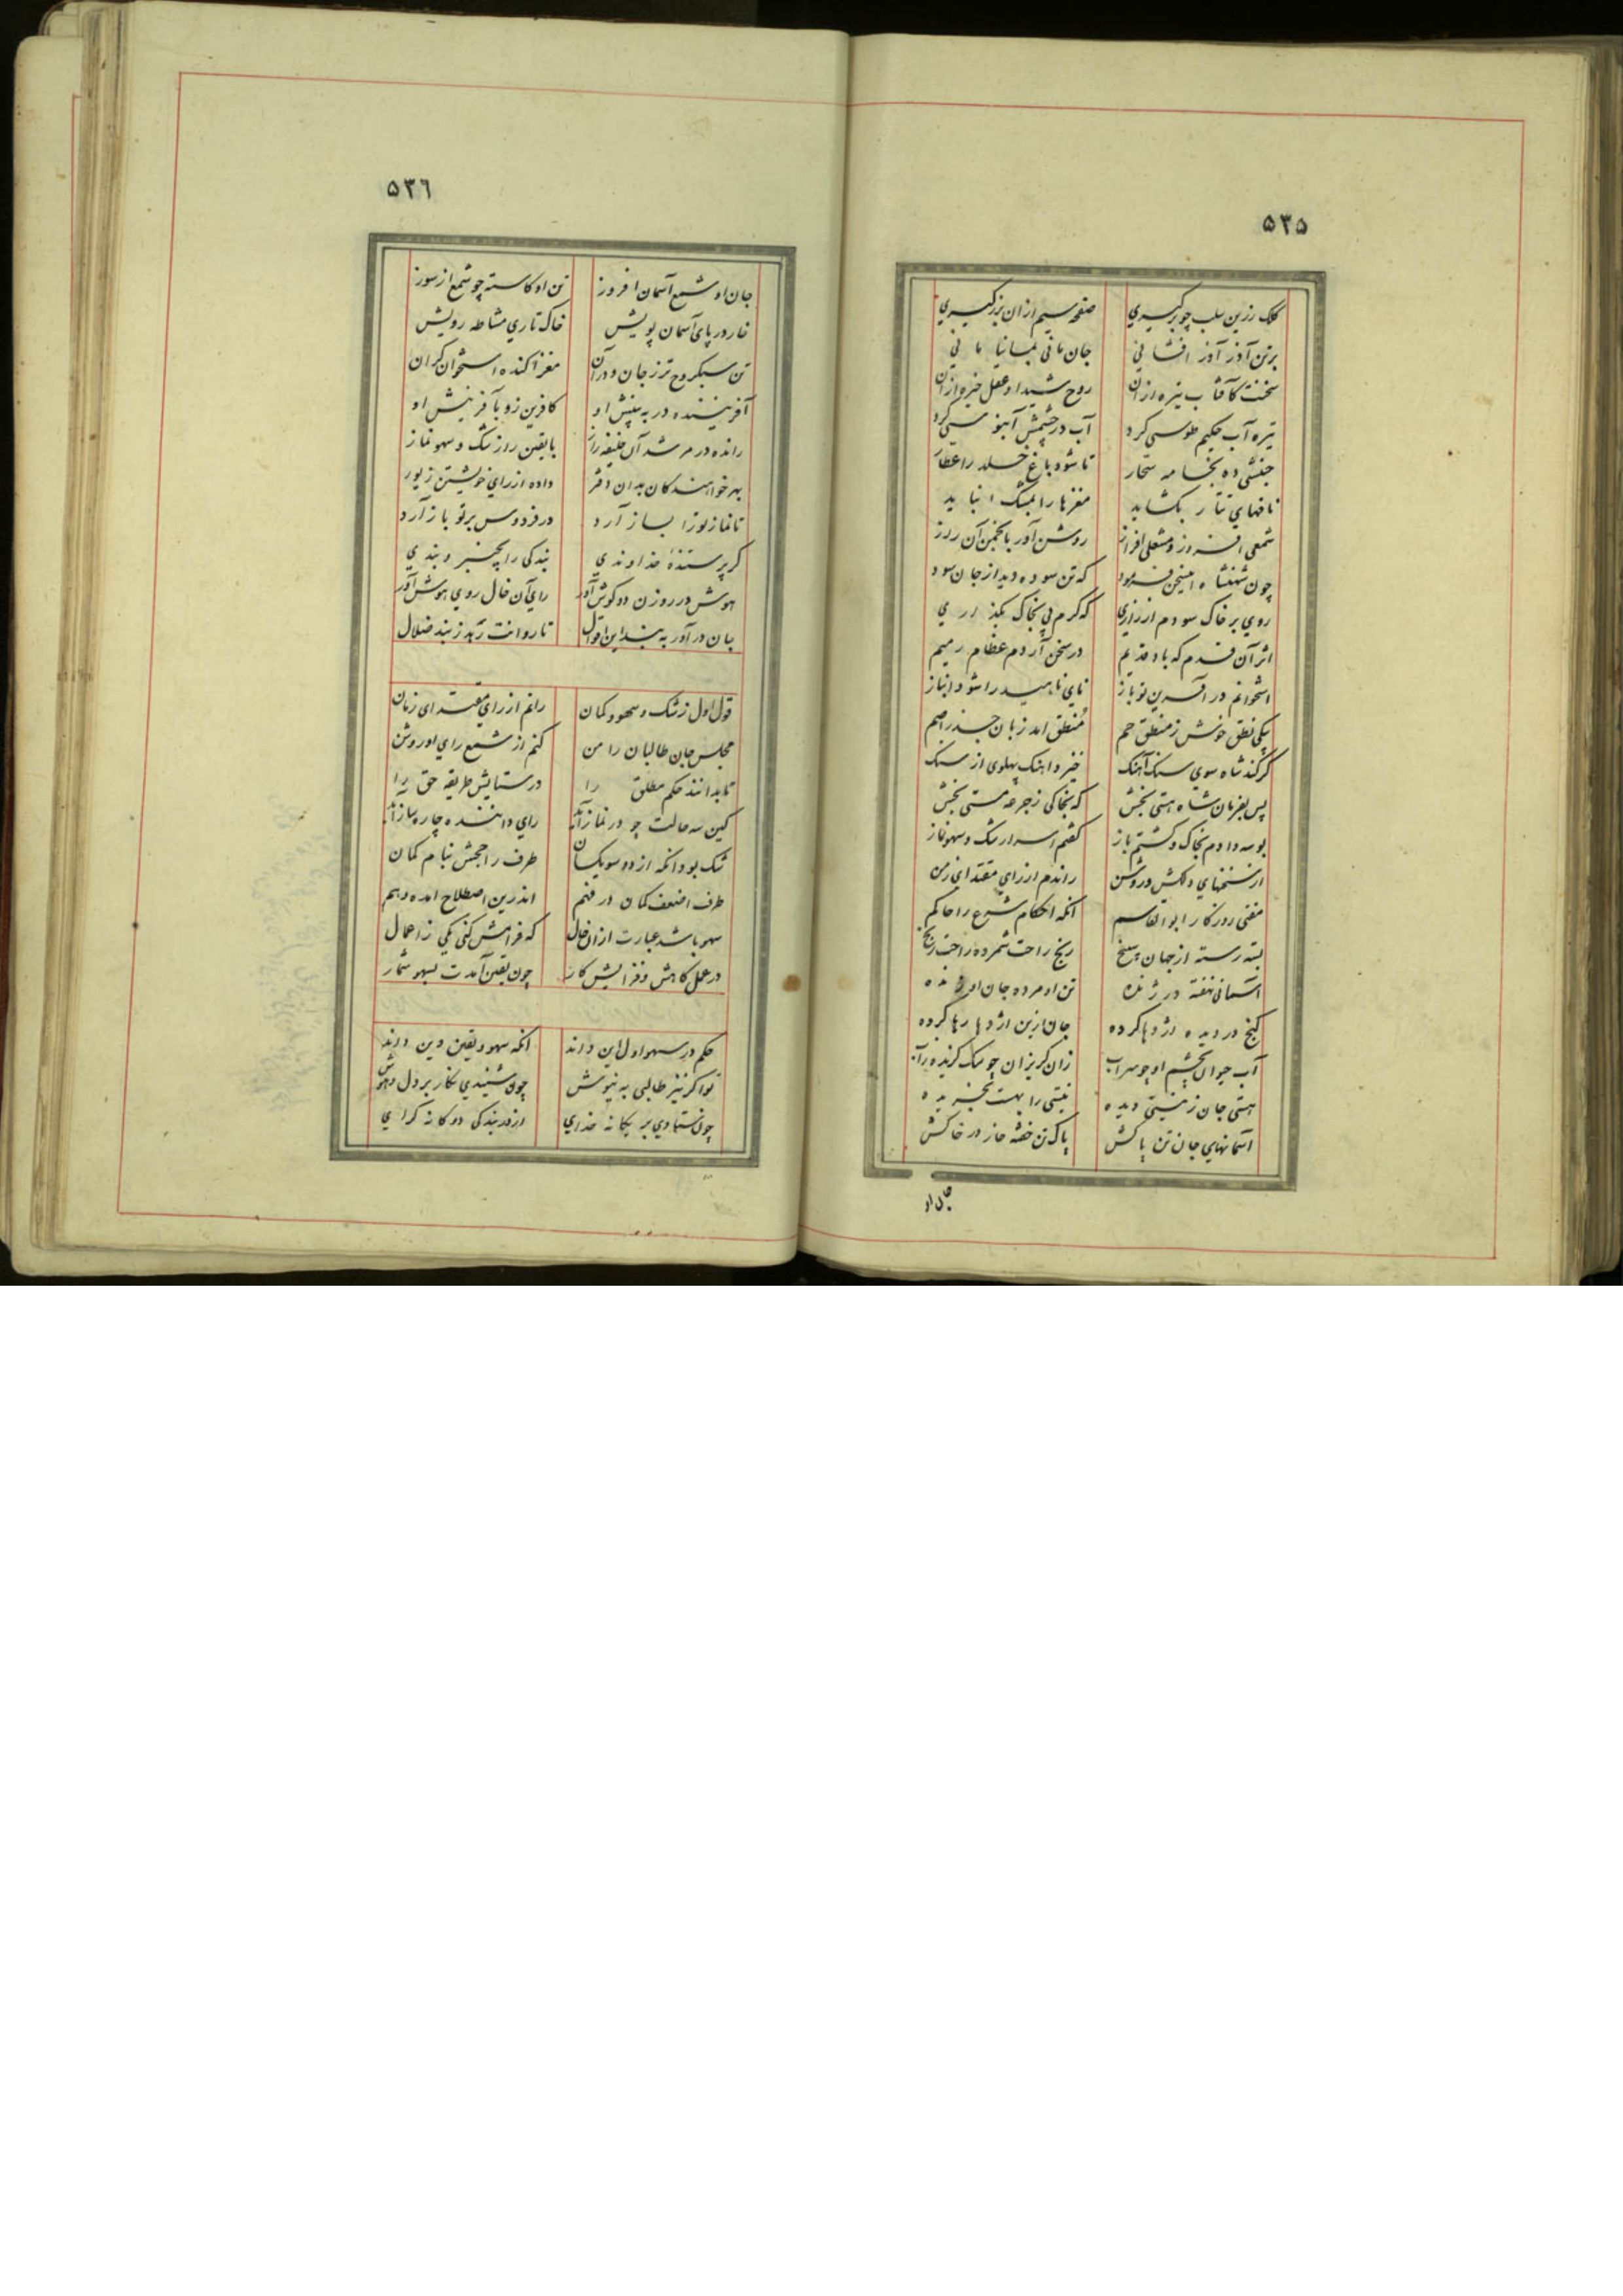 ٥٣٥
کلک زرین سلب چو برگیری صفحه سیم ازان بزرگیری
برتن آذر آذر افشانی جان مانی بمانیا مانی
سخنت کآفتاب تیره ازان روح شیدا و عقل خیره ازان
تیره آب حکیم طوسی کرد آب در چشمش آبنوسی کرد
جنبشی ده بخامه سحار تا شود باغ خلد را عطار
نافهای تتار بکشاید مغزها را بمشک انباید
شمعی افروز و مشعلی افراز روشن آور بانجمن آن راز
چون شهنشاه اینسخن فرمود که تن سوده دید از جان سود
روی بر خاک سودم از زاری که کرم پی بخاک بگذاری
اثر آن قدم که باد قدیم در سخن آردم عظام رمیم
استخوانم در آفرین تو باز نای ناهید را شود انباز
یکی نطق خوش ز منطق حم منطق امد زبان جذر اصم
گر کند شاه سوی سنک آهنک خیزد اهنک پهلوی از سنک
پس بفرمان شاه هستی بخش که بخاکی ز جرعه مستی بخش
بوسه دادم بخاک و گشتم باز گفتم اسرار شک و سهو نماز
از سخنهای دلکش و روشن راندم از رای مقتدای زمن
مفتی روزکار ابوالقاسم انکه احکام شرع را حاکم
بسته رسته از جهان سپنج رنج راحت شمرده راحت رنج
آسمانی نهفته در ژنده تن او مرده جان او زنده
گنج در دیده اژدها کرده جان ازین اژدها رها کرده
آب حیوان بچشم او چو سراب زان گریزان چو سک گزیده زآب
هستی جان ز نیستی دیده نیستی را بهست بخریده
آسمانهای جان تن پاکش پاک تن خفته جاز در خاکش
جان او
٥٣٦
جان او شمع آسمان افروز تن او کاسته چو شمع از سوز
خار در پای آسمان پویش خاک تاری مشاطه رویش
تن سبکروح تر ز جان و در آن مغز اکنده استخوان گران
آفریننده در به بینش او کافرین زو بآفرینش او
رانده در مرشد آن خلیفه راز بایقین راز شک و سهو نماز
بهر خواهندکان بدان دفتر داده از رای خویشتن زیور
تا نماز تو را بساز آرد در فردوس بر تو باز آرد
گر پرستنده خداوندی بندکی را بچنبر و بندی
هوش در روزن دو گوش آور رای آن خال روی هوش آور
جان در آور به بند این اقوال تا روانت رهد ز بند ضلال
قول اول ز شک و سهو و کمان رانم از رای مقتدای زمان
مجلس جان طالبان را من کنم از شمع رای او روشن
تا بدانند حکم مطلق را در ستایش طریقه حق را
کین سه حالت چو در نماز آید رای داننده چاره ساز آید
شک بود انکه از دو سو یکسان طرف راجحش بنام کمان
طرف اضعف کمان در فهم اندرین اصطلاح امده وهم
سهو باشد عبارت از ان حال که فرامش کنی یکی ز اعمال
در عمل کاهش و فزایش کار چون یقین آمدت بسهو شمار
حکم در سهو اول این داند انکه سهو و یقین دین داند
تو اکر نیز طالبی به نیوش چون شنیدی نکار بر دل و هوش
چون ستادی بر یکانه خدای از در بندکی دوکانه گرای